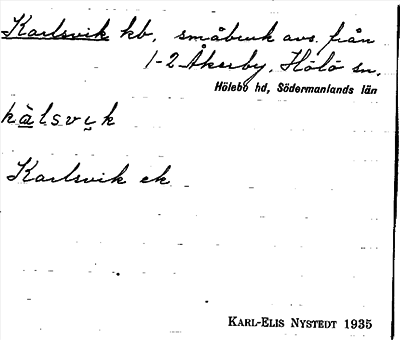 Karlsvik kb. småbruk avs. från
1-2 Åkerby, Hölö sn.
Hölebo hd, Södermanlands län
kàlsvɩk
Karlsvik ek
KARL-ELIS NYSTEDT 1935